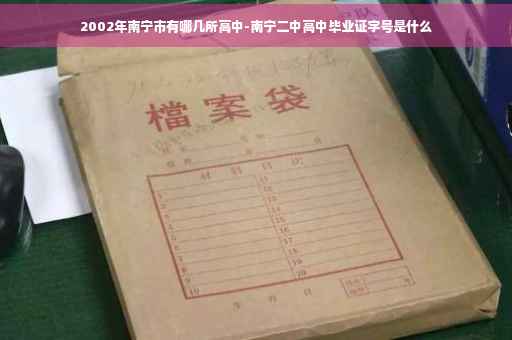 2002年南宁市有哪几所高中-南宁二中高中毕业证字号是什么
檔案袋
材料目次
1 11
2 12
3 13
4 14
5 15
6 16
7 17
8 18
9 19
10 20
年 月 日